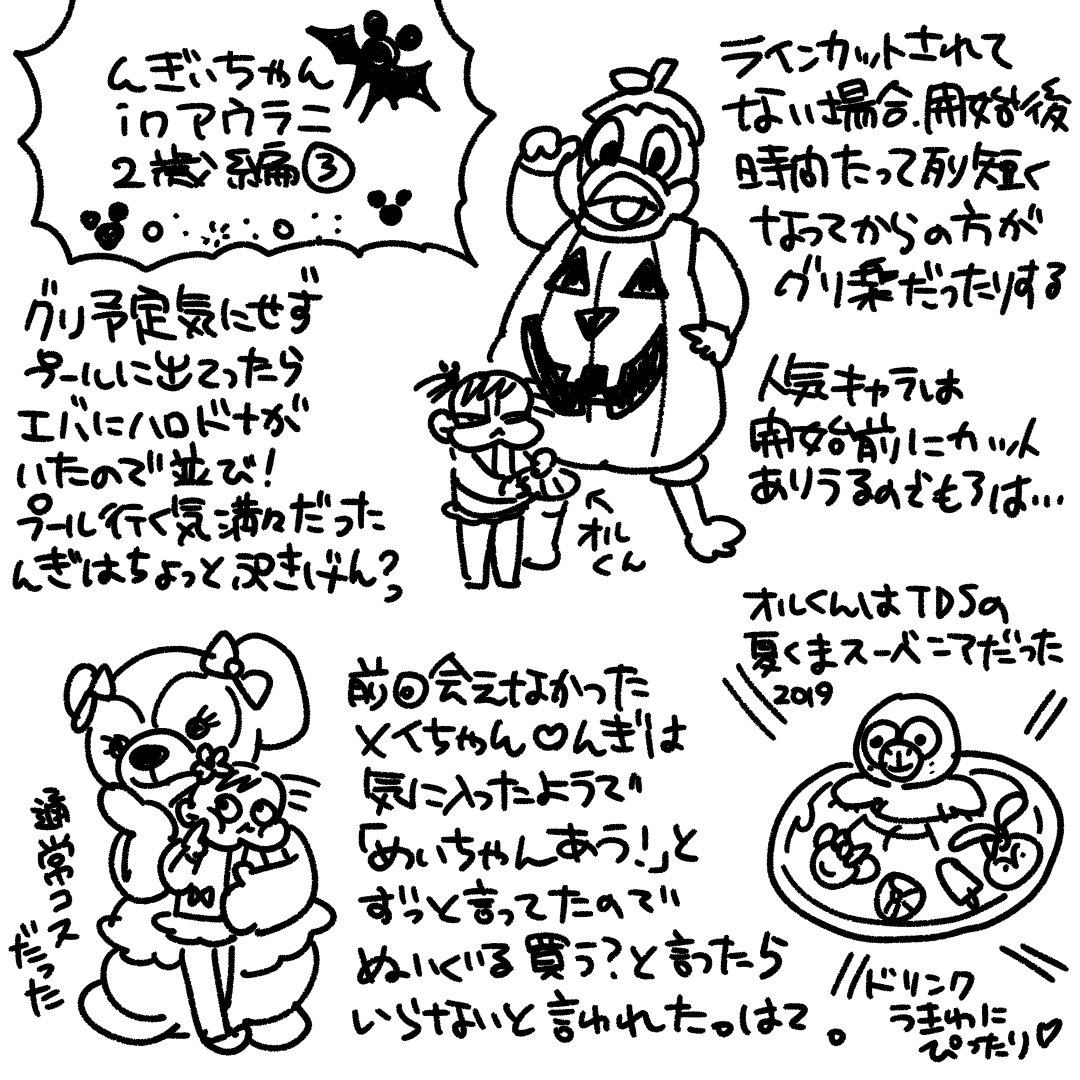 んぎぃちゃん
inアウラニ
2歳編③
グリ予定気にせず
プールに出てったら
エバにハロドナが
いたので並び!
プール行く気満々だった
んぎはちょっと泣きげん?
ラインカットされて
ない場合、開始後
時間たって列短く
なってからの方が
グリ楽だったりする
人気キャラは
開始前にカット
ありうるのでもろは…
オル
くん
オルくんはTDSの
夏くまスーベニアだった
2019
ドリンク
うきわに
ぴったり♡
前回会えなかった
メイちゃん♡んぎは
気に入ったようで
「めいちゃんあう!」と
ずっと言ってたので
ぬいぐるみ買う?と言ったら
いらないと言われた。はて。
通常コス
だった